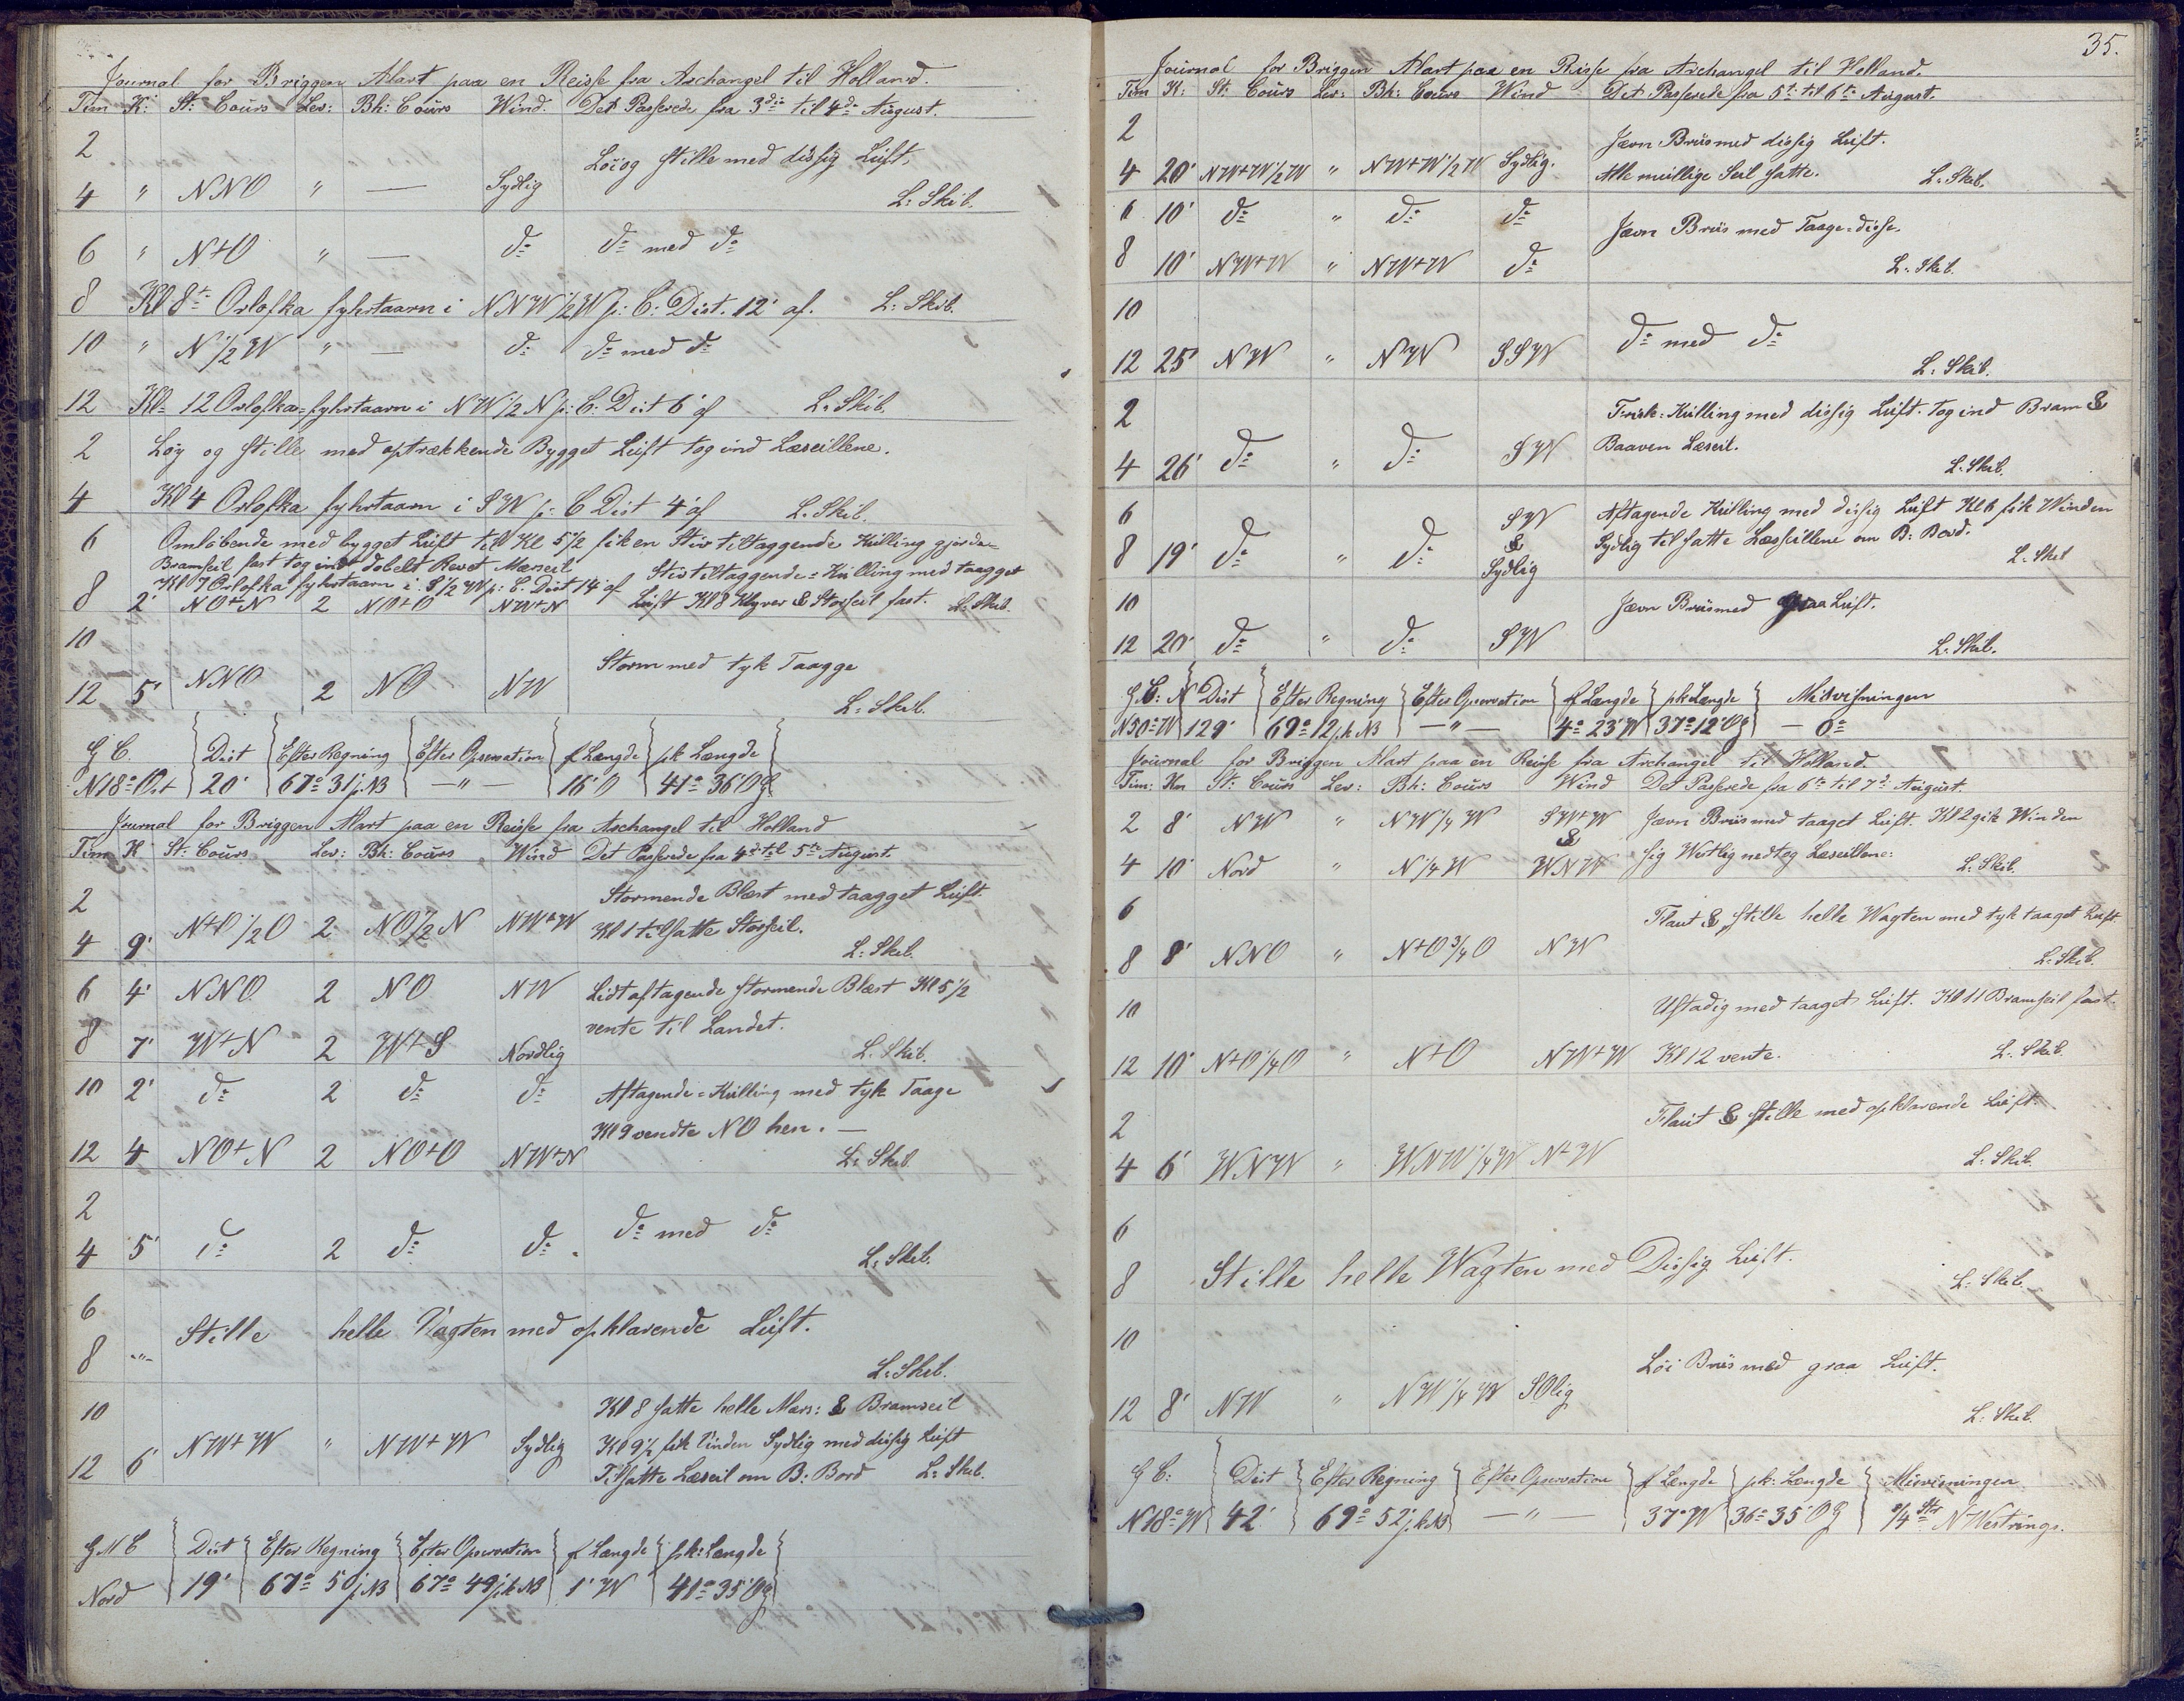 Journal for Briggen Mart paa en Reise fra Archangel til Holland.
Tim K: St: Cours Lev: Bk: Cours Wind. Det Passerede fra 3die til 4de August.
2 Løi og stille med dissig Luft.
4 " NNO " — Sydlig L: Skib.
6 " N+O " — do do med do
8 Kl 8te Orlofka fyhrtaarn i NNW 1/2 W p: C: Dist. 12' af. L: Skib.
10 " N 1/2 W " — do do med do
12 Kl= 12 Orlofka=fyhrtaarn i NW 1/2 N p: C: Dist 6' af L: Skib.
2 Løy og stille med optrækkende Bygget Luft tog ind Læseillene.
4 Kl 4 Orlofka fyhrtaarn i SW p: C Dist 4' af L: Skib.
6 Omløbende med bygget Luft til Kl 5 1/2 fik en Stiv tiltaggende Kulling gjorde=
Bramseil fast tog indt dobelt Revet Mærseil
Kl 7 Orlofka fyhrtaarn i S 1/2 W p: C. Dist 14' af Stivtiltaggende=Kulling med taagget
8 2' NO+N 2 NO+O NW+N Luft Kl 8 Klyver & Storseil fast. L: Skib.
10 Storm med tyk Taagge
12 5' NNO 2 NO NW L: Skib.
G C. Dist Efter Regning Efter Opservation f Længde pk Længde
N18° Ost 20' 67° 31' NB —"— 16' O 41° 36' Og
Journal for Briggen Mart paa en Reise fra Archangel til Holland
Tim K St: Cours Lev: Bk: Cours Wind Det Passerede fra 4de til 5te August.
2 Stormende Blæst med taagget Luft.
4 9' N+O 1/2 O 2 NO 1/2 N NW+W Kl 1 tilsatte Storseil. L: Skib.
6 4' NNO 2 NO NW Lidt aftagende stormende Blæst Kl 5 1/2
8 7' W+N 2 W+S Nordlig vente til Landet. L. Skib.
10 2' do 2 do do Aftagende=Kulling med tyk Taage
Kl 9 vendte NO hen. —
12 4 NO+N 2 NO+O NW+N L: Skib.
2 do med do
4 5' do 2 do do. L: Skib.
6 Stille helle Vagten med opklarende Luft.
8 -"- L: Skib.
10 Kl 8 satte helle Mærs: & Bramseil
NW+W " NW+W Sydlig Kl 9 1/2 fik Vinden Sydlig med dissig Luft
12 6' Tilsatte Læseil om B: Bord L: Skib.
G M C Dist Efter Regning Efter Opservation f Længde pk: Længde
Nord 19' 67° 50' NB 67° 49' pk NB 1' W 41° 35' Og
35.
Journal for Briggen Mart paa en Reise fra Archangel til Holland.
Tim K: St: Cours Lev: Bk: Cours Wind Det Passerede fra 5te til 6te August.
2 Jævn Briis med dissig Luft.
4 20' NW+W 1/2 W " NW+W 1/2 W Sydlig. Alle muillige Seil satte. L: Skib.
6 10' do " do do Jævn Briis med Taage=disse.
8 10' NW+W " NW+W do L: Skib.
10 do med do
12 25' NW " NW SSW L: Skib.
2 Frisk=Kulling med dissig Luft. tog ind Bram &
4 26' do " do SW Baaven Læseil. L: Skib.
6 SW Aftagende Kulling med dissig Luft Kl 6 fik Winden
8 19' do " do & Sydlig Sydlig tilsatte Læsseillene om B: Bord. L: Skib
10 Jævn Briis med graa Luft.
12 20' do " do SW L: Skib.
G C: N Dist Efter Regning Efter Opservation f Længde pk Længde Misvisningen
N50° W 129' 69° 12' pk NB —"— 4° 23' W 37° 12' Og — 0°
Journal for Briggen Mart paa en Reise fra Archangel til Holland.
Tim: Km St: Cours Lev: Bk: Cours Wind Det Passerede fra 6te til 7de August.
2 8' NW " NW 1/4 W SW+W Jævn Briis med taaget Luft. Kl 2 gik Winden
4 10' Nord " N 1/4 W & WNW sig Westlig nedtog Læseillene: L: Skib.
6 Flaut & stille helle Wagten med tyk taaget Luft.
8 8' NNO " N+O 3/4 O NW L: Skib.
10 Ustadig med taaget Luft. Kl 11 Bramseil fast.
12 10' N+O 1/4 O " N+O NW+W Kl 12 vente. L: Skib.
2 Flaut & stille med opklarende Luft.
4 6' WNW " WNW 1/4 W N+W L: Skib.
6
8 Stille helle Wagten med Dissig Luft. L: Skib.
10 Løi Briis med graa Luft.
12 8' NW " NW 1/4 W SOlig L: Skib.
G C: Dist Efter Regning Efter Opservation f Længde pk: Længde Misvisningen
N18° W 42' 69° 52' pk NB —"— 37' W 36° 35' Og /4 Str NWestrings.